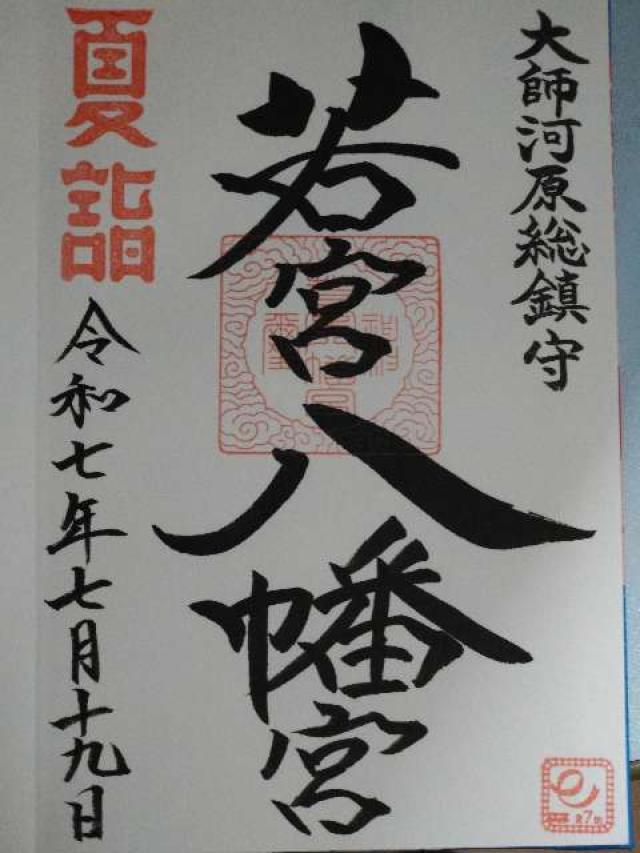 大師河原総鎮守
若宮八幡宮
夏詣
令和七年七月十九日